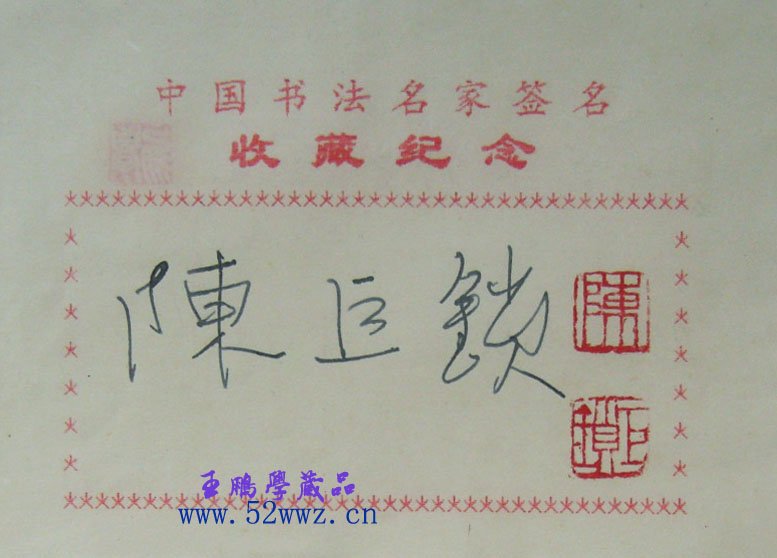 中国书法名家签名
收藏纪念
陳巨鎖
陳
巨鎖
王鵬學藏品
www.52wwz.cn